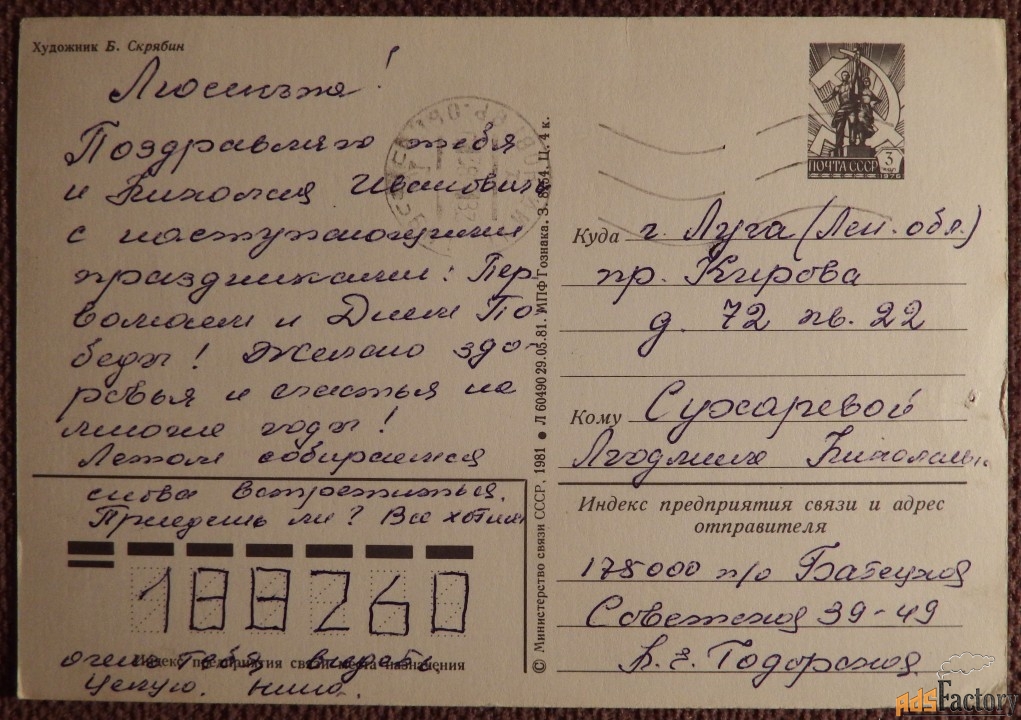 Художник Б. Скрябин
Люсенька!
Поздравляю тебя
и Николая Ивановича
с наступающими
праздниками: Пер
вомаем и Днем По
беды! Желаю здо-
ровья и счастья на
многие годы!
Летом собираемся
снова встретиться.
Приедешь ли? Все хотим
очень тебя видеть
Целую. Нина.
188260
Индекс предприятия связи места назначения
© Министерство связи СССР, 1981 ● Л 60490 29.05.81. МПФ Гознака. З. 8954. Ц. 4 к.
ПОЧТА СССР
3
КОП
1976
Куда г. Луга (Лен. обл.)
пр. Кирова
д. 72 кв. 22
Кому Сухаревой
Людмиле
Индекс предприятия связи и адрес
отправителя
175000 п/о Батецкая
Советская 39-49
Тодорская
AdsFactory